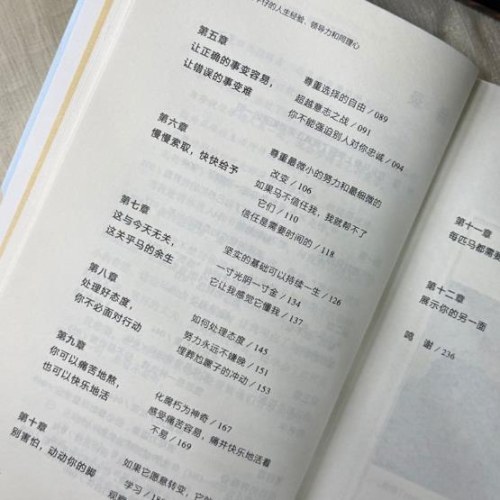 的人生经验、领导力和同理心
第五章
让正确的事变容易，
让错误的事变难
尊重选择的自由 / 089
超越意志之战 / 091
你不能强迫别人对你忠诚 / 094
第六章
慢慢索取，快快给予
尊重最微小的努力和最细微的
改变 / 106
如果马不信任我，我就帮不了
它们 / 110
信任是需要时间的 / 118
第七章
这与今天无关，
这关乎马的余生
坚实的基础可以持续一生 / 126
一寸光阴一寸金 / 134
它让我感觉它懂我 / 137
第八章
处理好态度，
你不必面对行动
如何处理态度 / 145
努力永远不嫌晚 / 151
埋葬尥蹶子的冲动 / 153
第九章
你可以痛苦地熬，
也可以快乐地活
化腐朽为神奇 / 167
感受痛苦容易，痛并快乐地活着
不易 / 169
第十章
别害怕，动动你的脚
如果它愿意转变，它
学习
第十一章
每匹马都需
第十二章
展示你的另一面
鸣 谢 / 236